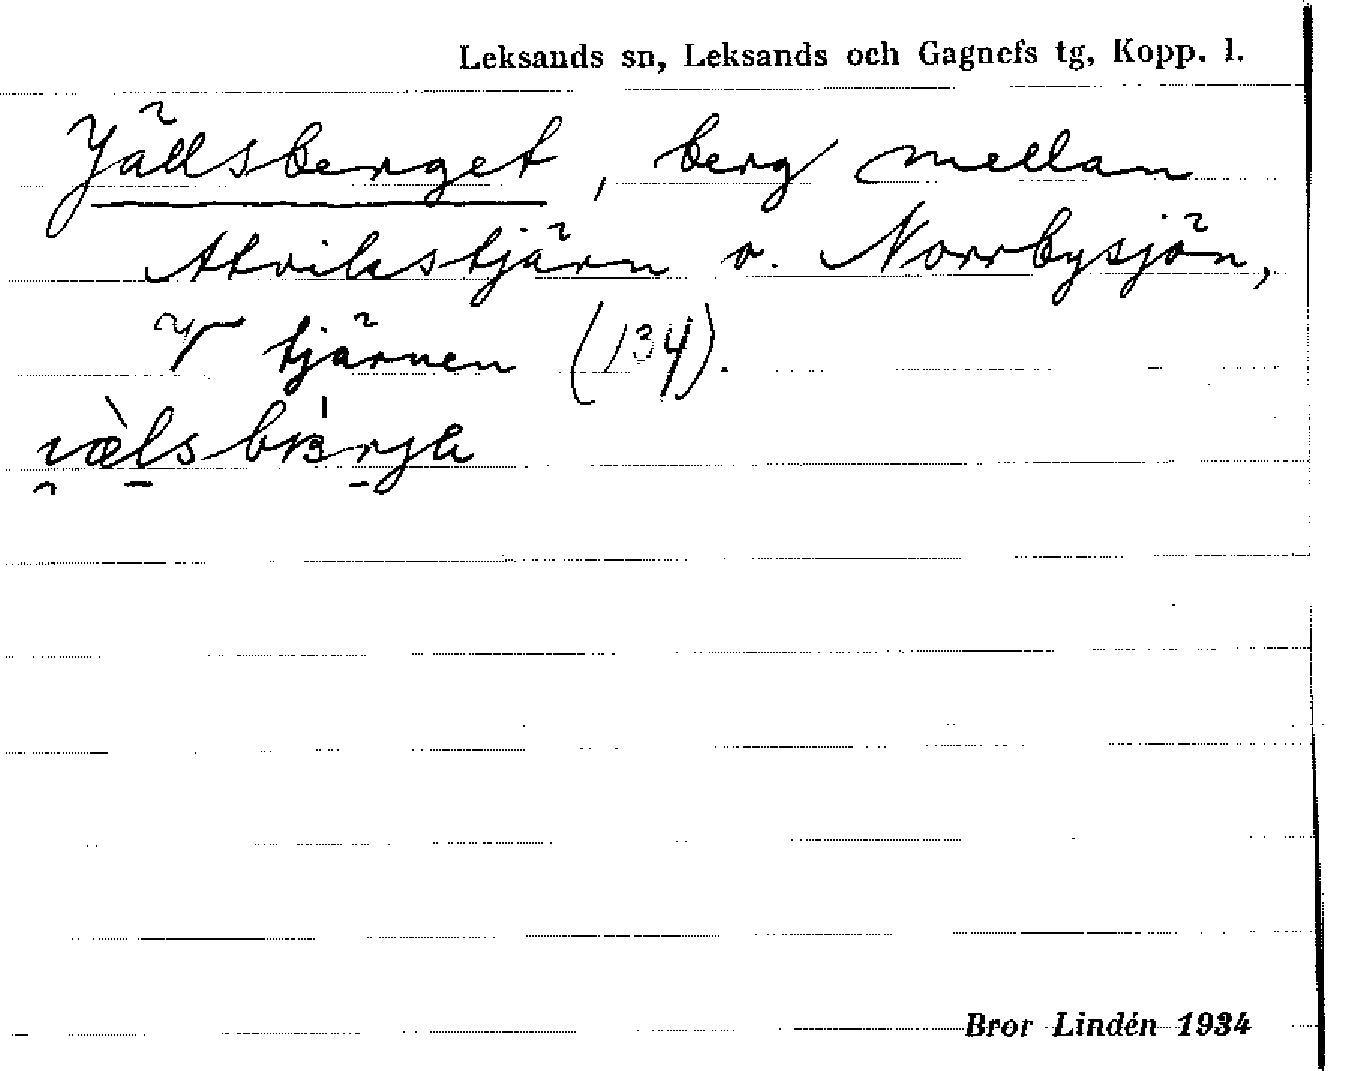 Leksands sn, Leksands och Gagnefs tg, Kopp. l.
Jällsberget, berg mellan
Alvikstjärn o. Norrbysjön,
V tjärnen (134).
Bror Lindén 1934